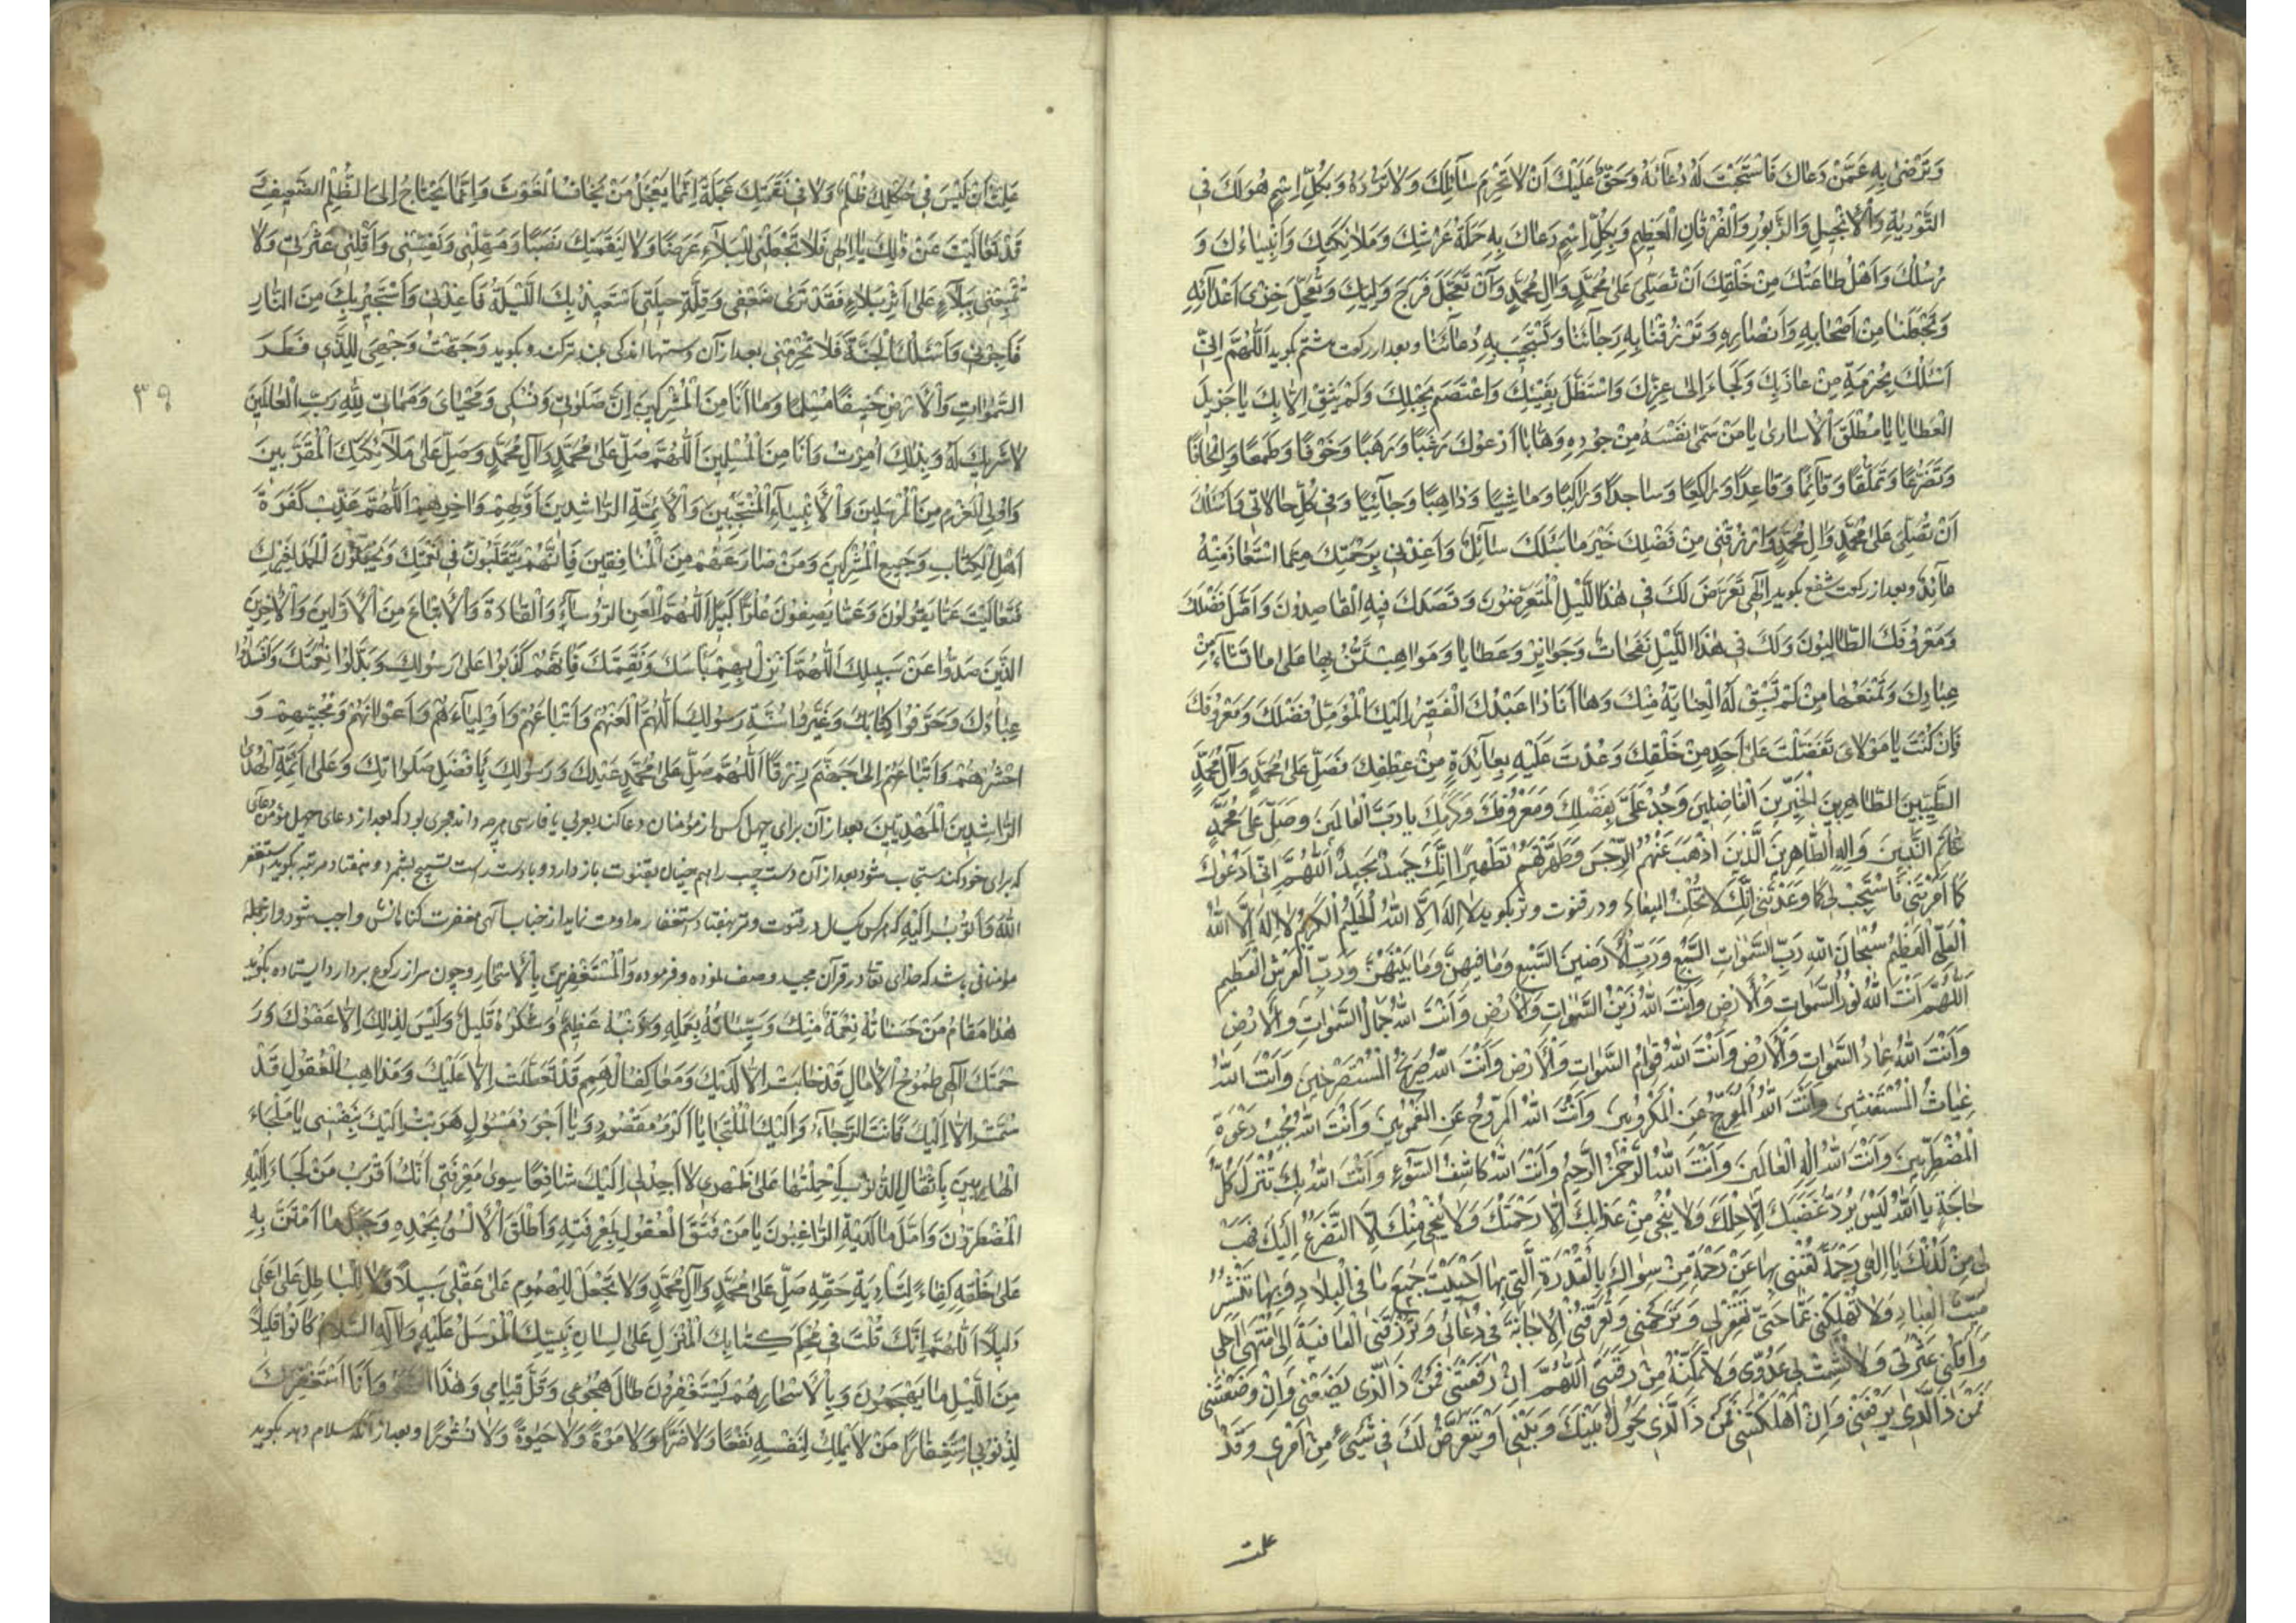 وَتَرْضىٰ بِهِ عَمَّنْ دَعاكَ فَاسْتَجَبْتَ لَهُ دُعآئَهُ وَحَقٌّ عَلَيْكَ اَنْ لا تَحْرِمَ سآئِلَكَ وَلا تَرُدَّهُ وَبِكُلِّ اسْمٍ هُوَ لَكَ فِى
التَّوْريٰةِ وَالْاِنْجيلِ وَالزَّبُورِ وَالْفُرْقانِ الْعَظيمِ وَبِكُلِّ اسْمٍ دَعاكَ بِهِ حَمَلَةُ عَرْشِكَ وَمَلائِكَتِكَ وَاَنْبِياءُكَ وَ
رُسُلُكَ وَاَهْلُ طاعَتِكَ مِنْ خَلْقِكَ اَنْ تُصَلِّىَ عَلىٰ مُحَمَّدٍ وَآلِ مُحَمَّدٍ وَاَنْ تُعَجِّلَ فَرَجَ وَلِيِّكَ وَتُعَجِّلَ خِزْىَ اَعْدآئِهِ
وَتَجْعَلَنا مِنْ اَصْحابِهِ وَاَنْصارِهِ وَتَرْزُقَنا بِهِ رَجآئَنا وَتَسْتَجيبَ بِهِ دُعآئَنا وبعد از ركعت هشتم بگويد اَللّٰهُمَّ اِنّى
اَسْئَلُكَ بِحُرْمَةِ مَنْ عاذَ بِكَ وَلَجَاءَ اِلىٰ عِزِّكَ وَاسْتَظَلَّ بِفَيْئِكَ وَاعْتَصَمَ بِحَبْلِكَ وَلَمْ يَثِقْ اِلّا بِكَ يا جَزيلَ
الْعَطايا يا مُطْلِقَ الْاُسارىٰ يا مَنْ سَمّىٰ نَفْسَهُ مِنْ جُودِهِ وَهّابًا اَدْعُوكَ رَغَبًا وَرَهَبًا وَخَوْفًا وَطَمَعًا وَاِلْحافًا
وَتَضَرُّعًا وَتَمَلُّقًا وَقآئِمًا وَقاعِدًا وَراكِعًا وَساجِدًا وَراكِبًا وَماشِيًا وَذاهِبًا وَجآئِيًا وَفى كُلِّ حالاتى وَاَسْئَلُكَ
اَنْ تُصَلِّىَ عَلىٰ مُحَمَّدٍ وَآلِ مُحَمَّدٍ وَارْزُقْنى مِنْ فَضْلِكَ خَيْرَ ما سَئَلَكَ سآئِلٌ وَاَعِذْنى بِرَحْمَتِكَ مِمَّا اسْتَعاذَ مِنْهُ
عآئِذٌ وبعد از ركعت شفع بگويد اِلٰهى تَعَرَّضَ لَكَ فى هٰذَا اللَّيْلِ الْمُتَعَرِّضُونَ وَقَصَدَكَ فيهِ الْقاصِدُونَ وَاَمَّلَ فَضْلَكَ
وَمَعْرُوفَكَ الطّالِبُونَ وَلَكَ فى هٰذَا اللَّيْلِ نَفَحاتٌ وَجَوائِزُ وَعَطايا وَمَواهِبُ تَمُنُّ بِها عَلىٰ ما تَشآءُ مِنْ
عِبادِكَ وَتَمْنَعُها مَنْ لَمْ تَسْبِقْ لَهُ الْعِنايَةُ مِنْكَ وَها اَنَا ذا عَبْدُكَ الْفَقيرُ اِلَيْكَ الْمُؤَمِّلُ فَضْلَكَ وَمَعْرُوفَكَ
فَاِنْ كُنْتَ يا مَوْلاىَ تَفَضَّلْتَ عَلىٰ اَحَدٍ مِنْ خَلْقِكَ وَعُدْتَ عَلَيْهِ بِعآئِدَةٍ مِنْ عَطْفِكَ فَصَلِّ عَلىٰ مُحَمَّدٍ وَآلِ مُحَمَّدٍ
الطَّيِّبينَ الطّاهِرينَ الْخَيِّرينَ الْفاضِلينَ وَجُدْ عَلَىَّ بِفَضْلِكَ وَمَعْرُوفِكَ وَكَرَمِكَ يا رَبَّ الْعالَمينَ وَصَلِّ عَلىٰ مُحَمَّدٍ
خاتَمِ النَّبِيّينَ وَآلِهِ الطّاهِرينَ الَّذينَ اَذْهَبَ عَنْهُمُ الرِّجْسَ وَطَهَّرَهُمْ تَطْهيرًا اِنَّكَ حَميدٌ مَجيدٌ اَللّٰهُمَّ اِنّى اَدْعُوكَ
كَما اَمَرْتَنى فَاسْتَجِبْ لى كَما وَعَدْتَنى اِنَّكَ لا تُخْلِفُ الْميعادَ ودر قنوت وتر بگويد لا اِلٰهَ اِلَّا اللّٰهُ الْحَليمُ الْكَريمُ لا اِلٰهَ اِلَّا اللّٰهُ
الْعَلِىُّ الْعَظيمُ سُبْحانَ اللّٰهِ رَبِّ السَّمٰواتِ السَّبْعِ وَرَبِّ الْاَرَضينَ السَّبْعِ وَما فيهِنَّ وَما بَيْنَهُنَّ وَرَبِّ الْعَرْشِ الْعَظيمِ
اَللّٰهُمَّ اَنْتَ اللّٰهُ نُورُ السَّمٰواتِ وَالْاَرْضِ وَاَنْتَ اللّٰهُ زَيْنُ السَّمٰواتِ وَالْاَرْضِ وَاَنْتَ اللّٰهُ جَمالُ السَّمٰواتِ وَالْاَرْضِ
وَاَنْتَ اللّٰهُ عِمادُ السَّمٰواتِ وَالْاَرْضِ وَاَنْتَ اللّٰهُ قِوامُ السَّمٰواتِ وَالْاَرْضِ وَاَنْتَ اللّٰهُ صَريخُ الْمُسْتَصْرِخينَ وَاَنْتَ اللّٰهُ
غِياثُ الْمُسْتَغيثينَ وَاَنْتَ اللّٰهُ الْمُفَرِّجُ عَنِ الْمَكْرُوبينَ وَاَنْتَ اللّٰهُ الْمُرَوِّحُ عَنِ الْمَغْمُومينَ وَاَنْتَ اللّٰهُ مُجيبُ دَعْوَةِ
الْمُضْطَرّينَ وَاَنْتَ اللّٰهُ اِلٰهُ الْعالَمينَ وَاَنْتَ اللّٰهُ الرَّحْمٰنُ الرَّحيمُ وَاَنْتَ اللّٰهُ كاشِفُ السُّوءِ وَاَنْتَ اللّٰهُ بِكَ تُنْزَلُ كُلُّ
حاجَةٍ يا اَللّٰهُ لَيْسَ يَرُدُّ غَضَبَكَ اِلّا حِلْمُكَ وَلا يُنْجى مِنْ عَذابِكَ اِلّا رَحْمَتُكَ وَلا يُنْجى مِنْكَ اِلَّا التَّضَرُّعُ اِلَيْكَ فَهَبْ
لى مِنْ لَدُنْكَ يا اِلٰهى رَحْمَةً تُغْنينى بِها عَنْ رَحْمَةِ مَنْ سِواكَ بِالْقُدْرَةِ الَّتى بِها اَحْيَيْتَ جَميعَ ما فِى الْبِلادِ وَبِها تَنْشُرُ
مَيْتَ الْعِبادِ وَلا تُهْلِكْنى غَمًّا حَتّىٰ تَغْفِرَ لى وَتَرْحَمَنى وَتُعَرِّفَنِى الْاِجابَةَ فى دُعائى وَتَرْزُقَنِى الْعافِيَةَ اِلىٰ مُنْتَهىٰ اَجَلى
وَاَقِلْنى عَثْرَتى وَلا تُشْمِتْ بى عَدُوّى وَلا تُمَكِّنْهُ مِنْ رَقَبَتى اَللّٰهُمَّ اِنْ رَفَعْتَنى فَمَنْ ذَا الَّذى يَضَعُنى وَاِنْ وَضَعْتَنى
فَمَنْ ذَا الَّذى يَرْفَعُنى وَاِنْ اَهْلَكْتَنى فَمَنْ ذَا الَّذى يَحُولُ بَيْنَكَ وَبَيْنى اَوْ يَتَعَرَّضُ لَكَ فى شَىْءٍ مِنْ اَمْرى وَقَدْ
علمت
عَلِمْتُ اَنْ لَيْسَ فى حُكْمِكَ ظُلْمٌ وَلا فى نَقِمَتِكَ عَجَلَةٌ اِنَّما يَعْجَلُ مَنْ يَخافُ الْفَوْتَ وَاِنَّما يَحْتاجُ اِلَى الظُّلْمِ الضَّعيفُ وَ
قَدْ تَعالَيْتَ عَنْ ذٰلِكَ يا اِلٰهى فَلا تَجْعَلْنى لِلْبَلآءِ غَرَضًا وَلا لِنَقِمَتِكَ نَصَبًا وَمَهِّلْنى وَنَفِّسْنى وَاَقِلْنى عَثْرَتى وَلا
تُتْبِعْنى بِبَلآءٍ عَلىٰ اَثَرِ بَلآءٍ فَقَدْ تَرىٰ ضَعْفى وَقِلَّةَ حيلَتى اَسْتَعيذُ بِكَ اللَّيْلَةَ فَاَعِذْنى وَاَسْتَجيرُ بِكَ مِنَ النّارِ
فَاَجِرْنى وَاَسْئَلُكَ الْجَنَّةَ فَلا تَحْرِمْنى بعد از آن دستها اندكى بلندتر كند و بگويد وَجَّهْتُ وَجْهِىَ لِلَّذى فَطَرَ
السَّمٰواتِ وَالْاَرْضَ حَنيفًا مُسْلِمًا وَما اَنَا مِنَ الْمُشْرِكينَ اِنَّ صَلٰوتى وَنُسُكى وَمَحْياىَ وَمَماتى لِلّٰهِ رَبِّ الْعالَمينَ
٣٩
لا شَريكَ لَهُ وَبِذٰلِكَ اُمِرْتُ وَاَنَا مِنَ الْمُسْلِمينَ اَللّٰهُمَّ صَلِّ عَلىٰ مُحَمَّدٍ وَآلِ مُحَمَّدٍ وَصَلِّ عَلىٰ مَلآئِكَتِكَ الْمُقَرَّبينَ
وَاُولِى الْعَزْمِ مِنَ الْمُرْسَلينَ وَالْاَنْبِيآءِ الْمُنْتَجَبينَ وَالْاَئِمَّةِ الرّاشِدينَ اَوَّلِهِمْ وَآخِرِهِمْ اَللّٰهُمَّ عَذِّبْ كَفَرَةَ
اَهْلِ الْكِتابِ وَجَميعَ الْمُشْرِكينَ وَمَنْ ضارَعَهُمْ مِنَ الْمُنافِقينَ فَاِنَّهُمْ يَتَقَلَّبُونَ فى نِعْمَتِكَ وَيَجْعَلُونَ الْحَمْدَ لِغَيْرِكَ
فَتَعالَيْتَ عَمّا يَقُولُونَ وَعَمّا يَصِفُونَ عُلُوًّا كَبيرًا اَللّٰهُمَّ الْعَنِ الرُّؤَسآءَ وَالْقادَةَ وَالْاَتْباعَ مِنَ الْاَوَّلينَ وَالْآخِرينَ
الَّذينَ صَدُّوا عَنْ سَبيلِكَ اَللّٰهُمَّ اَنْزِلْ بِهِمْ بَأْسَكَ وَنَقِمَتَكَ فَاِنَّهُمْ كَذَبُوا عَلىٰ رَسُولِكَ وَبَدَّلُوا نِعْمَتَكَ وَاَفْسَدُوا
عِبادَكَ وَحَرَّفُوا كِتابَكَ وَغَيَّرُوا سُنَّةَ رَسُولِكَ اَللّٰهُمَّ الْعَنْهُمْ وَاَتْباعَهُمْ وَاَوْلِيآءَهُمْ وَاَعْوانَهُمْ وَمُحِبّيهِمْ وَ
احْشُرْهُمْ وَاَتْباعَهُمْ اِلىٰ جَهَنَّمَ زُرْقًا اَللّٰهُمَّ صَلِّ عَلىٰ مُحَمَّدٍ عَبْدِكَ وَرَسُولِكَ بِاَفْضَلِ صَلَواتِكَ وَعَلىٰ اَئِمَّةِ الْهُدىٰ
الرّاشِدينَ الْمَهْدِيّينَ بعد از آن براى چهل كس از مؤمنان دعا كند بعربى يا فارسى هرچه داند مجرى بود كه بعد از دعاى چهل مؤمن دعائى
كه براى خود كند مستجاب شود بعد از آن دست چپ را همچنان بقنوت باز دارد و با دست راست تسبيح بشمرد و هفتاد مرتبه بگويد استغفر
اللّٰهَ وَاَتُوبُ اِلَيْهِ كه هركس يكسال در قنوت وتر بهفتاد استغفار مداومت نمايد از جناب آلهى مغفرت گناهانش واجب شود و از جمله
مؤمنانى باشد كه خداى تعا در قرآن مجيد وصف نموده و فرموده وَالْمُسْتَغْفِرينَ بِالْاَسْحارِ و چون سر از ركوع بردارد ايستاده بگويد
هٰذا مَقامُ مَنْ حَسَناتُهُ نِعْمَةٌ مِنْكَ وَسَيِّئاتُهُ بِعَمَلِهِ وَذَنْبُهُ عَظيمٌ وَشُكْرُهُ قَليلٌ وَلَيْسَ لِذٰلِكَ اِلّا عَفْوُكَ وَرَ
حْمَتُكَ اِلٰهى طُمُوحُ الْآمالِ قَدْ خابَتْ اِلّا لَدَيْكَ وَمَعاكِفُ الْهِمَمِ قَدْ تَعَطَّلَتْ اِلّا عَلَيْكَ وَمَذاهِبُ الْعُقُولِ قَدْ
سَمَتْ اِلّا اِلَيْكَ فَاَنْتَ الرَّجآءُ وَاِلَيْكَ الْمُلْتَجَا يا اَكْرَمَ مَقْصُودٍ وَيا اَجْوَدَ مَسْئُولٍ هَرَبْتُ اِلَيْكَ بِنَفْسى يا مَلْجَاءَ
الْهارِبينَ بِاَثْقالِ الذُّنُوبِ اَحْمِلُها عَلىٰ ظَهْرى لا اَجِدُ لى اِلَيْكَ شافِعًا سِوىٰ مَعْرِفَتى اَنَّكَ اَقْرَبُ مَنْ لَجَاءَ اِلَيْهِ
الْمُضْطَرُّونَ وَاَمَّلَ ما لَدَيْهِ الرّاغِبُونَ يا مَنْ فَتَقَ الْعُقُولَ بِمَعْرِفَتِهِ وَاَطْلَقَ الْاَلْسُنَ بِحَمْدِهِ وَجَعَلَ مَا امْتَنَّ بِهِ
عَلىٰ خَلْقِهِ كِفاءً لِتَأْدِيَةِ حَقِّهِ صَلِّ عَلىٰ مُحَمَّدٍ وَآلِ مُحَمَّدٍ وَلا تَجْعَلْ لِلْهُمُومِ عَلىٰ عَقْلى سَبيلًا وَلا لِلْباطِلِ عَلىٰ عَمَلى
دَليلًا اَللّٰهُمَّ اِنَّكَ قُلْتَ فى مُحْكَمِ كِتابِكَ الْمُنْزَلِ عَلىٰ لِسانِ نَبِيِّكَ الْمُرْسَلِ عَلَيْهِ وَآلِهِ السَّلامُ كانُوا قَليلًا
مِنَ اللَّيْلِ ما يَهْجَعُونَ وَبِالْاَسْحارِ هُمْ يَسْتَغْفِرُونَ طالَ هُجُوعى وَقَلَّ قِيامى وَهٰذَا السَّحَرُ وَاَنَا اَسْتَغْفِرُكَ
لِذُنُوبى اسْتِغْفارًا مَنْ لا يَمْلِكُ لِنَفْسِهِ نَفْعًا وَلا ضَرًّا وَلا مَوْتًا وَلا حَيٰوةً وَلا نُشُورًا وبعد از آنكه سلام دهد بگويد